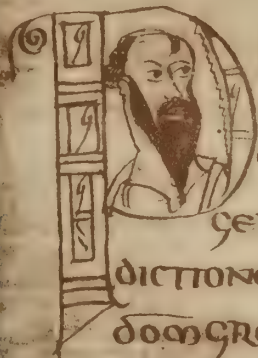 P
GE
DICTIONE
DOMGR